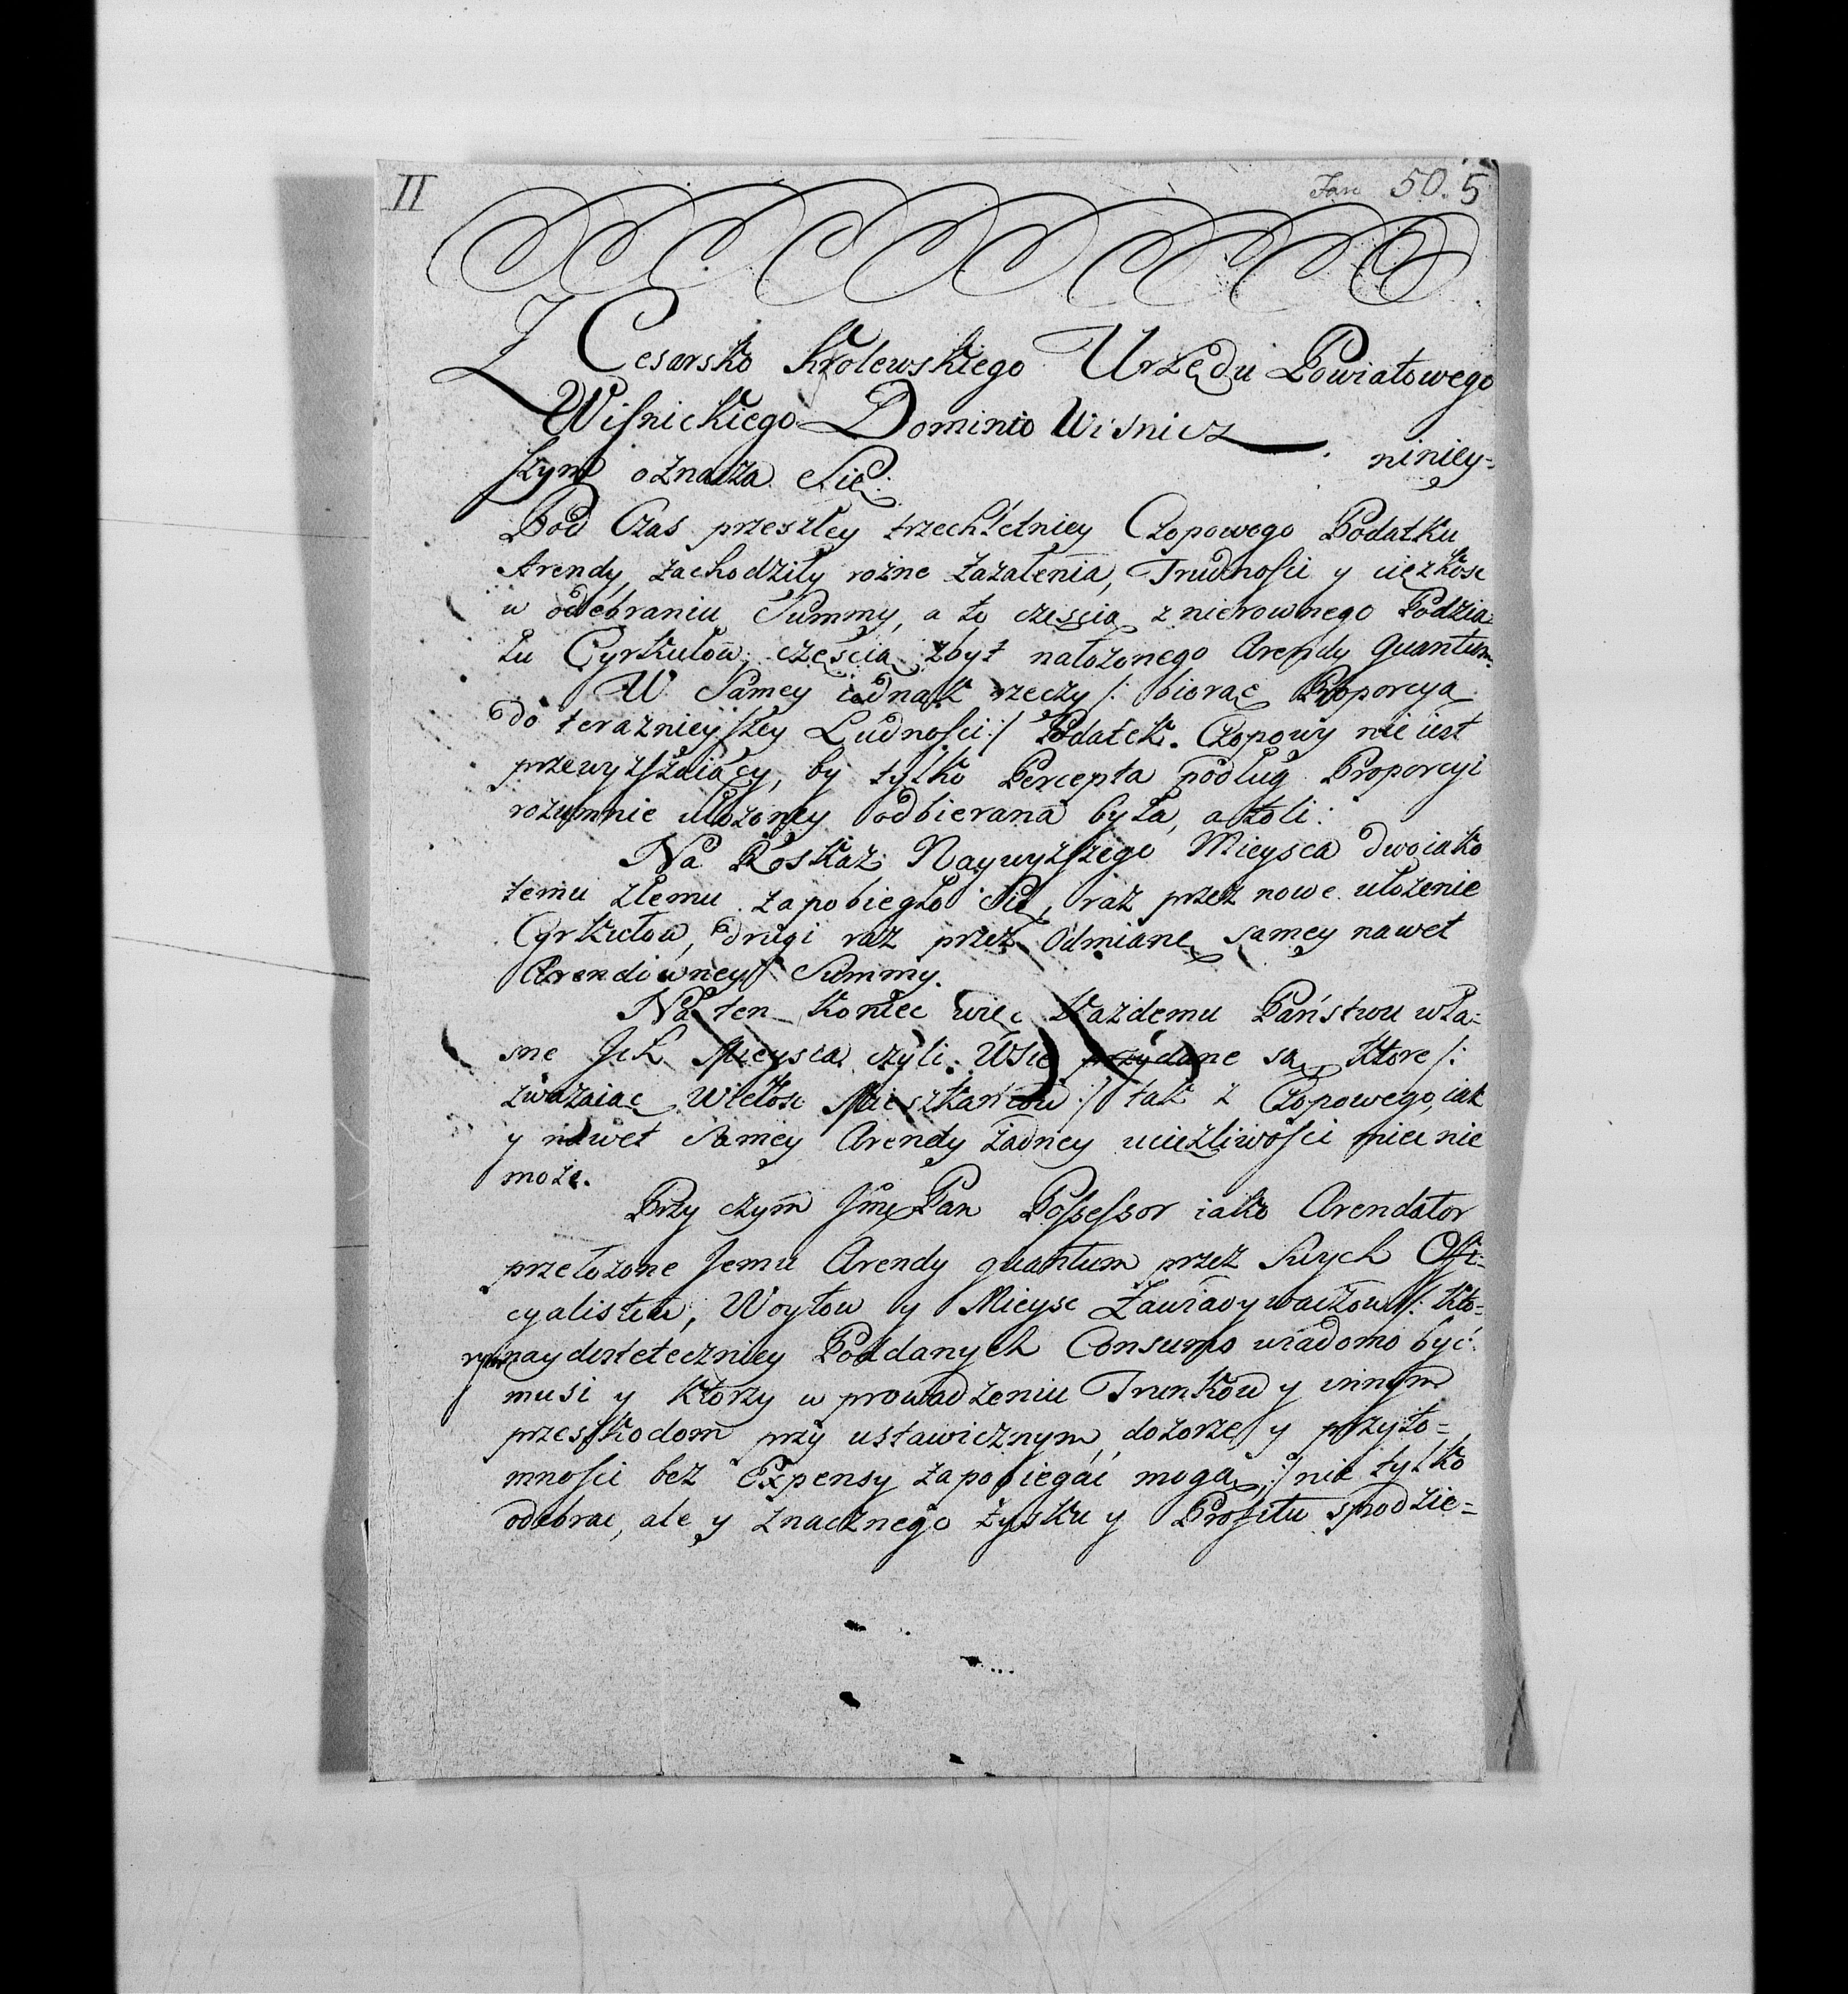 II
Jan 50. 5
Z Cesarsko Krolewskiego Urzędu Powiatowego
Wisnickiego Dominio Wisnicz niniey-
szym oznacza Się:
Pod Czas przeszłey trzechletniey Czopowego Podatku
Arendy, zachodziły rożne Zażalenia, Trudności y ciężkosc
w odebraniu Summy, a to częscią z nierownego Podzia-
łu Cyrkułow, częścią zbyt nałożonego Arendy Quantum.
W Samey iednak rzeczy /: biorąc Proporcyą
do teraznieyszey Ludności :/ Podatek Czopowy nie iest
przewyższaiący, by tylko Percepta podług Proporcyi
rozumnie ułożoney odbierana była, atoli:
Na Roskaz Naywyższego Mieysca dwoiako
temu złemu zapobiegło Się, raz przez nowe ułożenie
Cyrkułow, drugi raz przez Odmianę samey nawet
Arendowney Summy.
Na ten koniec więc każdemu Państwu wła-
sne Ich Mieysca czyli Wsie przydane są, ktore /:
zważaiąc Wielosc Mieszkańcow :/ tak z Czopowego, iak
y nawet Samey Arendy żadney uciążliwości miec nie
może.
Przy czym Jmć Pan Possessor iako Arendator
przełożone Jemu Arendy quantum przez Swych Offi-
cyalistow, Woytow y Mieysc Zawiadywaczow /: kto-
rym naydostateczniey Poddanych Consumo wiadomo być
musi y ktorzy w prowadzeniu Trunkow y innym
przeszkodom przy ustawicznym dozorze y przyto-
mności bez Expensy zapobiegać mogą :/ nie tylko
odebrac, ale y znacznego zysku y Profitu spodzie-